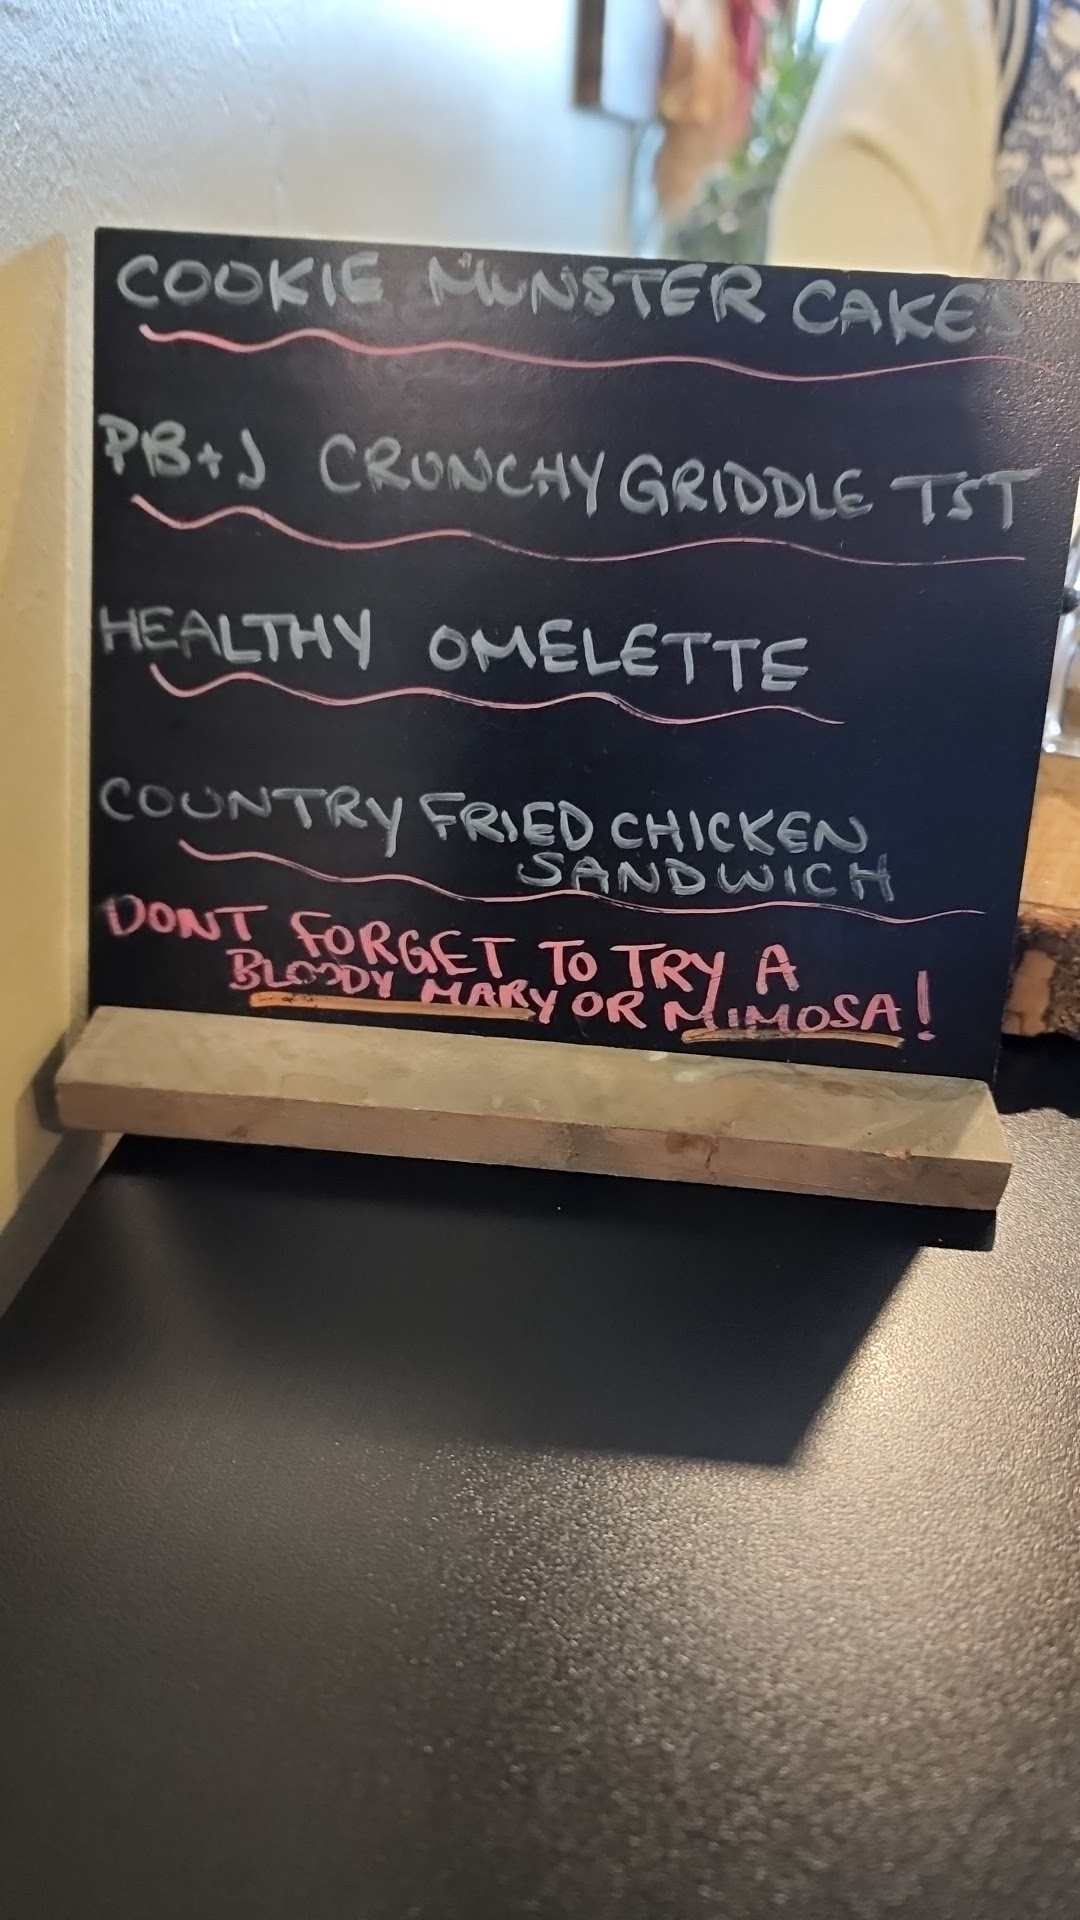 COOKIE MUNSTER CAKES
PB+J CRUNCHY GRIDDLE TST
HEALTHY OMELETTE
COUNTRY FRIED CHICKEN
SANDWICH
DONT FORGET TO TRY A
BLOODY MARY OR MIMOSA!